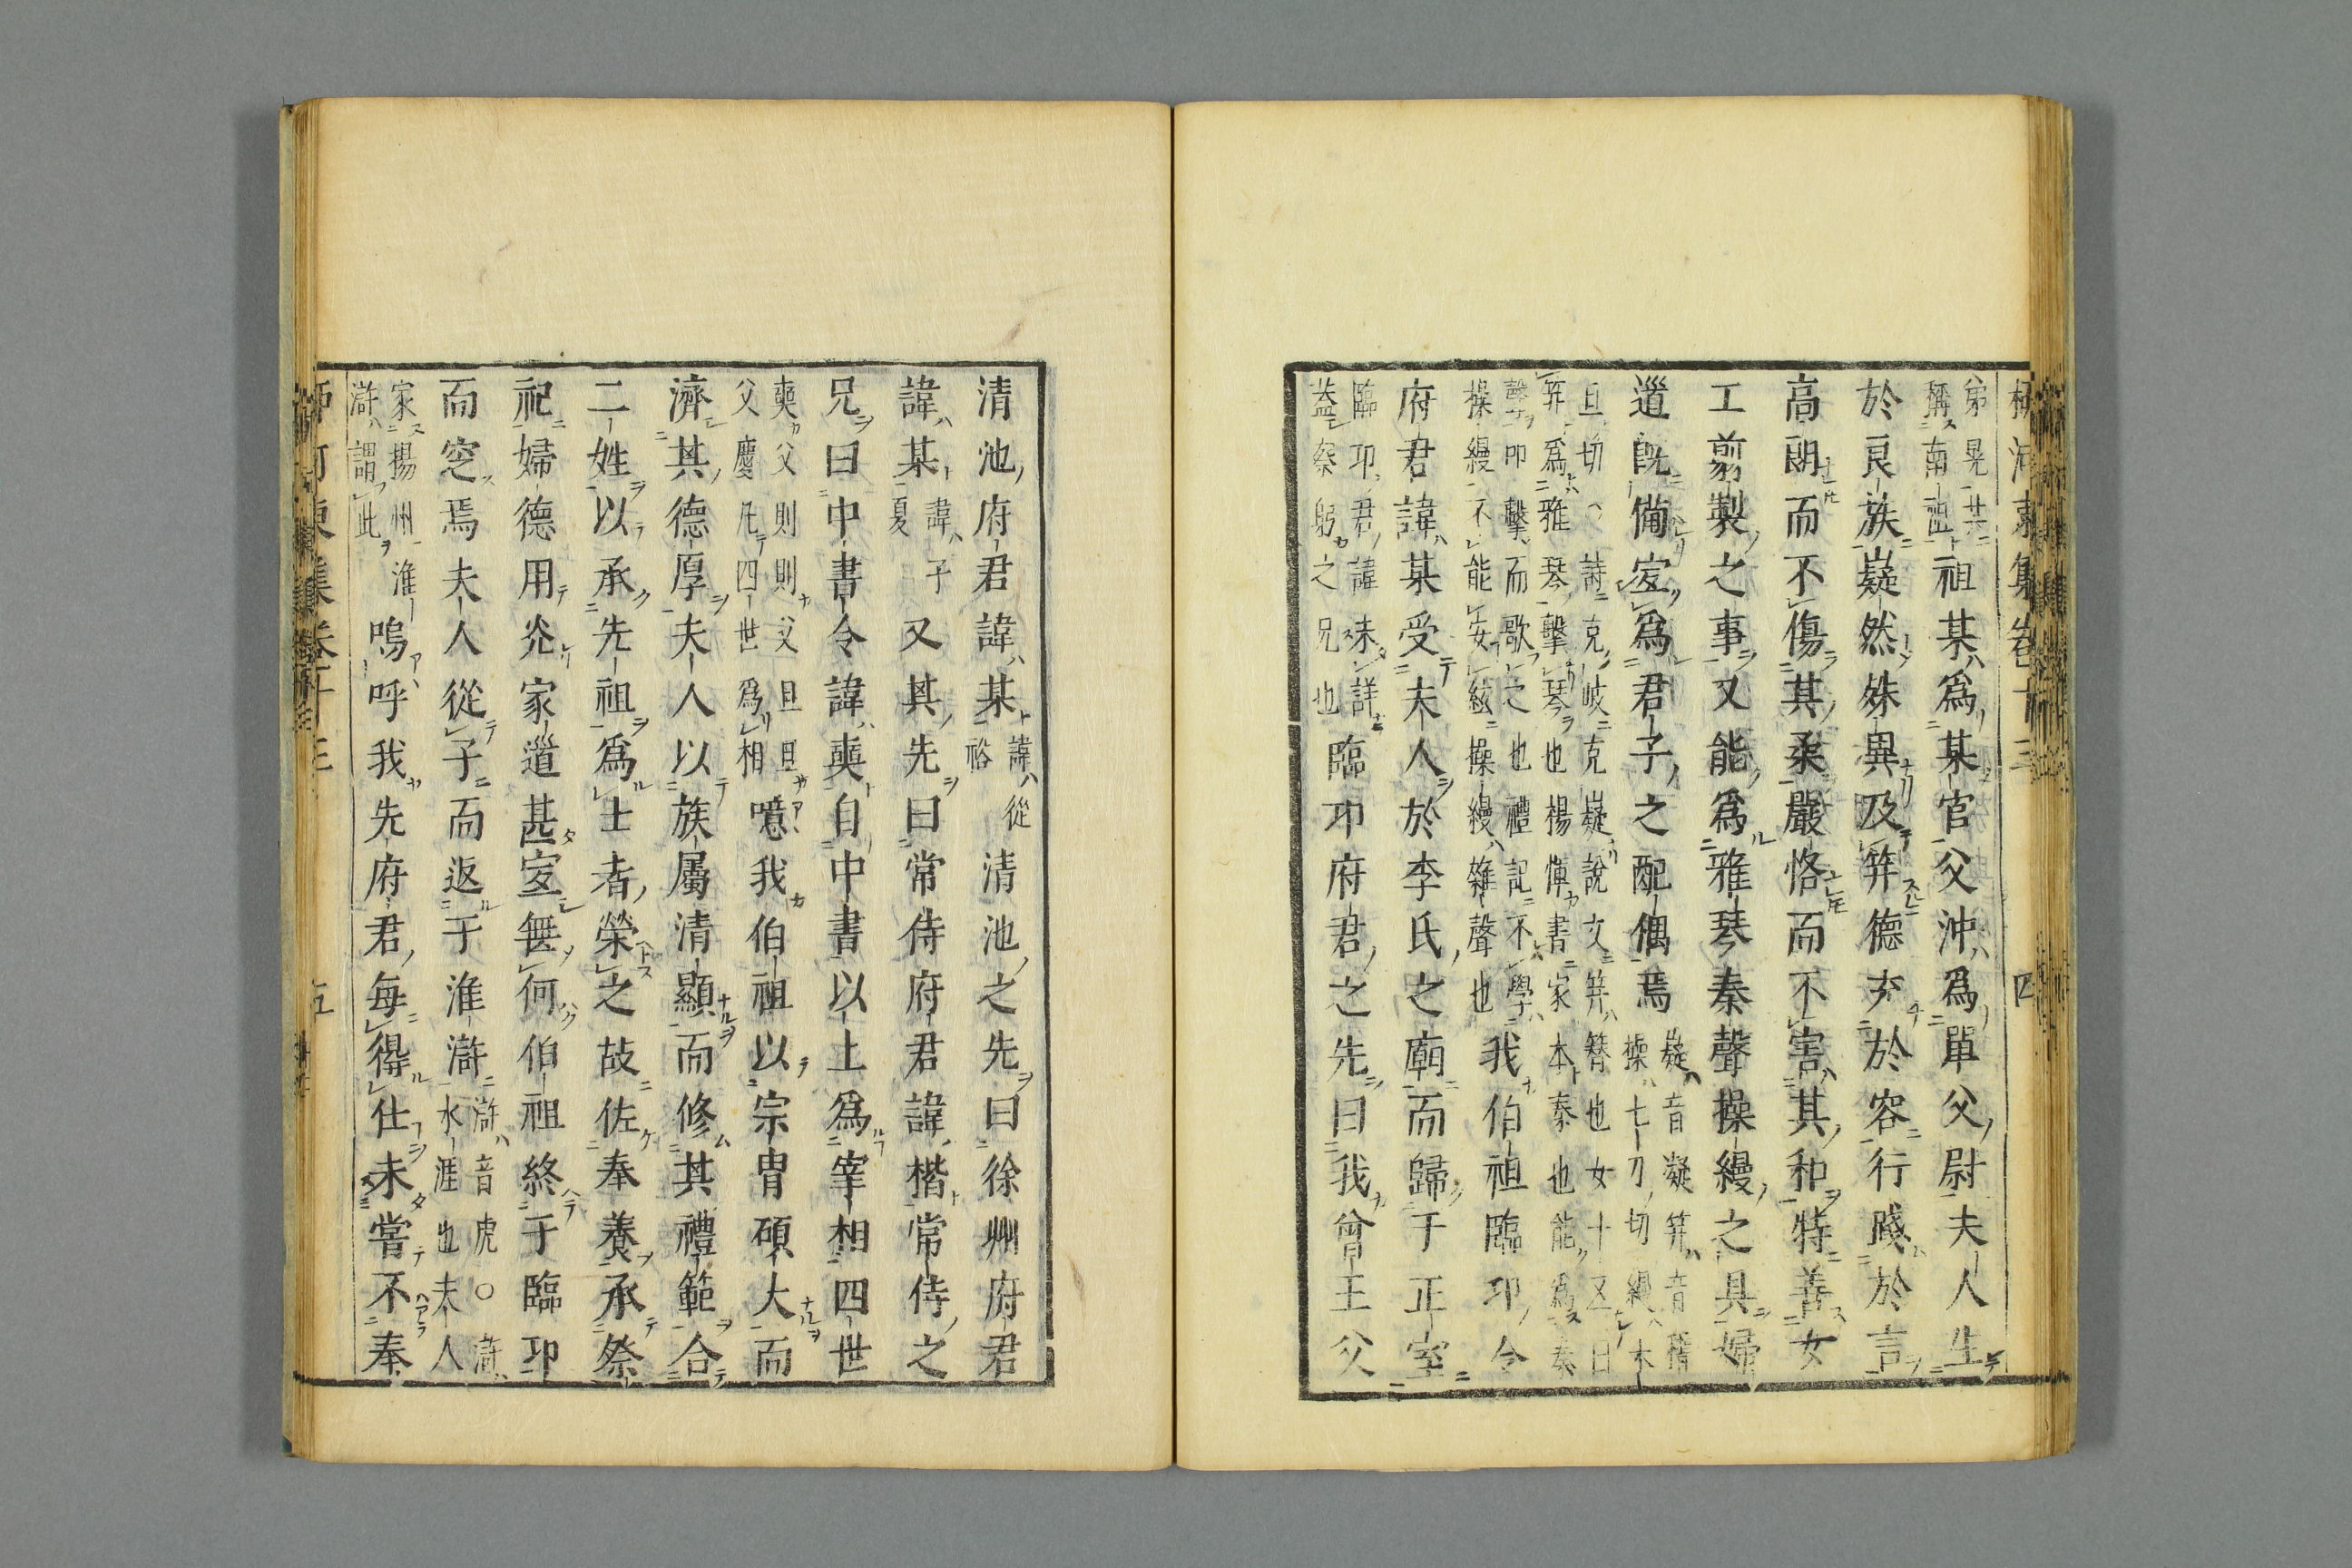 柳河東集卷十三　四
弟晃世
稱南祖祖某爲某官父沖爲單父尉夫人生
於良族嶷然殊異及笄德充於容行踐於言
高朗而不傷其柔嚴恪而不害其和特善女
工剪製之事又能爲雅琴秦聲操縵之具婦
道既備宜爲君子之配偶焉嶷音凝笄音稽操七刀切縵木
旦切○詩克岐克嶷說文笄簪也女十五曰
笄爲雅琴擊琴也楊惲書家本秦也能爲秦
聲叩擊而歌之也禮記不學
操縵不能安絃操縵雜聲也我伯祖臨邛令
府君諱某受夫人於李氏之廟而歸于正室
臨邛君諱未詳
蓋察躬之兄也臨邛府君之先曰我曾王父
清池府君諱某諱從裕清池之先曰徐州府君
諱某諱子夏又其先曰常侍府君諱楷常侍之
兄曰中書令諱奭自中書以上爲宰相四世
奭父則則父旦旦
父慶凡四世爲相噫我伯祖以宗胄碩大而
濟其德厚夫人以族屬清顯而修其禮範合
二姓以承先祖爲士者榮之故佐奉養承祭
祀婦德用光家道甚宜無何伯祖終于臨邛
而窆焉夫人從子而返于淮滸滸音虎○滸水涯也夫人
家揚州淮
滸謂此嗚呼我先府君每得仕未嘗不奉
柳河東集卷十三　五